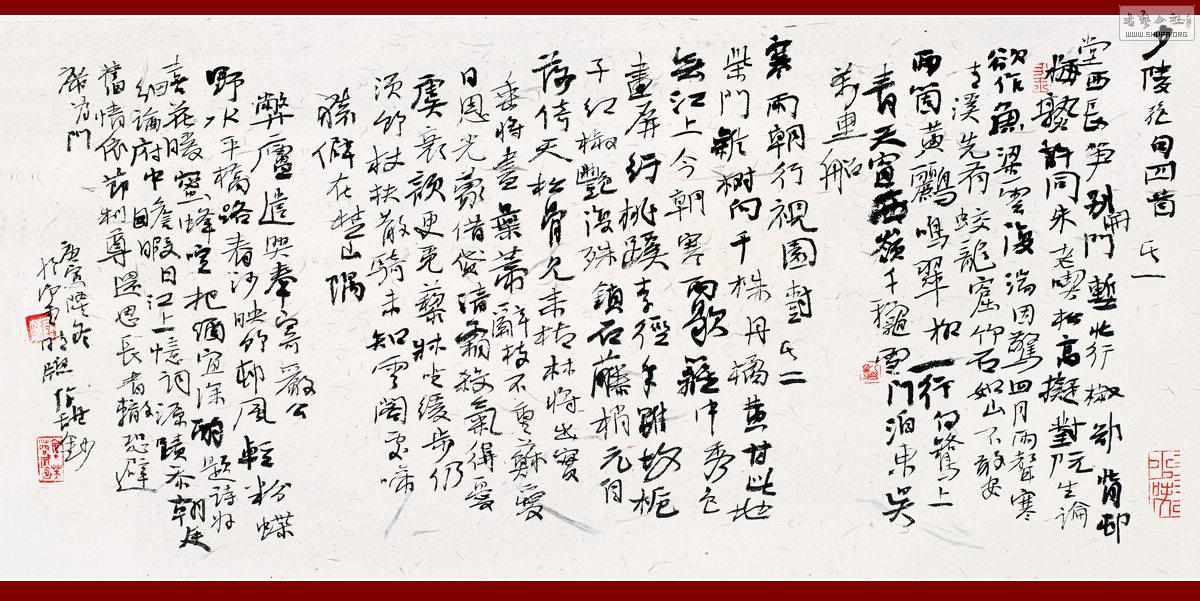 少陵絶句四首 其一
堂西長笋别開門塹北行椒却背邨
梅熟許同朱老喫松高擬對阮生論
欲作魚梁雲復湍因驚四月雨聲寒
青溪先有蛟龍窟竹石如山不敢安
兩箇黄鸝鳴翠柳一行白鷺上
青天窗含西嶺千秋雪門泊東吳
萬里船
寒雨朝行視園樹 其二
柴門雜樹向千株丹橘黄甘此地
無江上今朝寒雨歇籬中秀色
畫屏紆桃蹊李徑年雖故栀
子紅椒艷復殊鎖石藤梢元自
落倚天松骨見来枯林將出實
垂將盡葉蒂辭枝不重蘇愛
日恩光蒙借貸清霜殺氣得憂
虞衰顔更覓藜牀坐緩步仍
須竹杖扶散騎未知雲閣處啼
猿僻在楚山隅
弊廬遣興奉寄嚴公
野水平橋路春沙映竹邨風輕粉蝶
喜花暖蜜蜂喧把酒宜深酌題詩好
細論府中瞻暇日江上憶詞源蹟忝朝廷
舊情依節制尊還思長者轍恐避
席為門
WWW.SHUFA.ORG